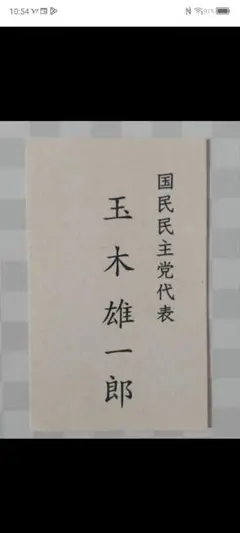 10:54
国民民主党代表
玉木雄一郎